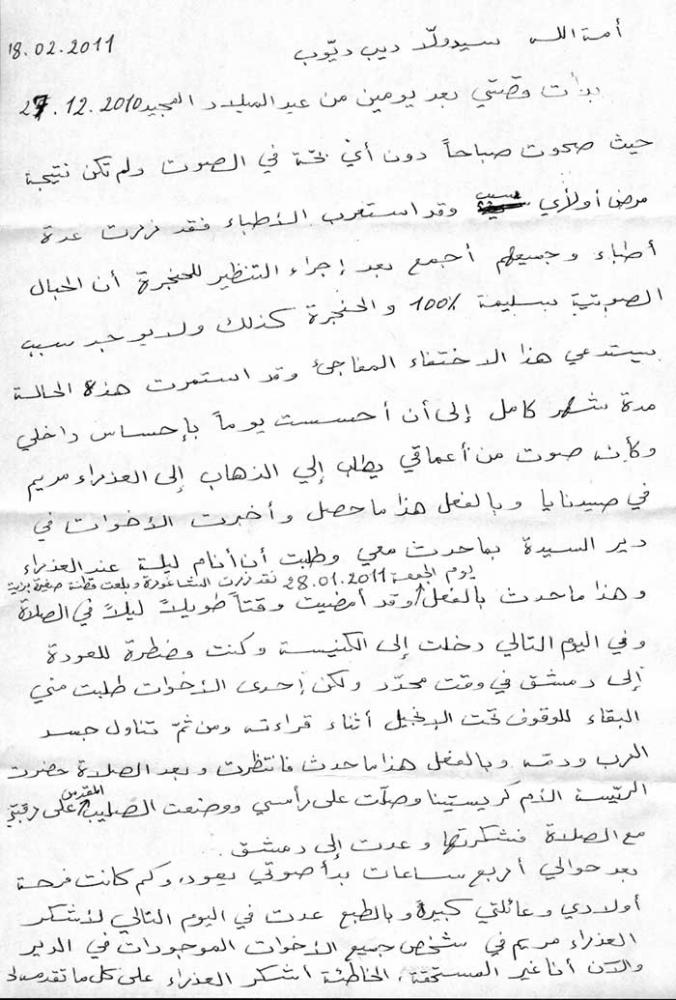 أمة الله سيدولّا ديب ديّوب 18.02.2011
بدأت قصتي بعد يومين من عيد الميلاد المجيد 27.12.2010
حيث صحوت صباحاً دون أي بحّة في الصوت ولم تكن نتيجة
مرض أو لأي سبب وقد استغرب الأطباء فقد زرت عدة
أطباء وجميعهم أجمع بعد إجراء التنظير للحنجرة أن الحبال
الصوتية سليمة 100% والحنجرة كذلك ولا يوجد سبب
يستدعي هذا الاختفاء المفاجئ وقد استمرت هذه الحالة
مدة شهر كامل إلى أن أحسست يوماً بإحساس داخلي
وكأنه صوت من أعماقي يطلب إلي الذهاب إلى العذراء مريم
في صيدنايا وبالفعل هذا ما حصل وأخبرت الأخوات في
دير السيدة بما حدث معي وطلبت أن أنام ليلة عند العذراء
يوم الجمعة 28.01.2011 فقد زرت الشاغورة وبلعت قطنة صغيرة بزيت
وهذا ما حدث بالفعل وقد أمضيت وقتاً طويلاً ليلاً في الصلاة
وفي اليوم التالي دخلت إلى الكنيسة وكنت مضطرة للعودة
إلى دمشق في وقت محدّد ولكن إحدى الأخوات طلبت مني
البقاء للوقوف تحت الإنجيل أثناء قراءته ومن ثمّ تناول جسد
الرب ودمه وبالفعل هذا ما حدث فانتظرت وبعد الصلاة حضرت
الرئيسة الأم كريستينا وصلّت على رأسي ووضعت الصليب المقدس على رقبتي
مع الصلاة فشكرتها وعدت إلى دمشق.
بعد حوالي أربع ساعات بدأ صوتي يعود، وكم كانت فرحة
أولادي وعائلتي كبيرة وبالطبع عدت في اليوم التالي لأشكر
العذراء مريم في شخص جميع الأخوات الموجودات في الدير
والآن أنا غير المستحقة، الخاطئة أشكر العذراء على كل ما تقدمه لي